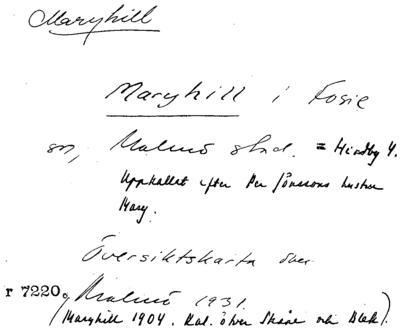 Maryhill
Maryhill i Fosie
sn, Malmö stad. = Hindby 4.
Uppkallat efter Per Jönssons hustru
Mary.
Översiktskarta över
r 7220 Malmö 1931.
(Maryhill 1904. Kal. över Skåne och Blek.)